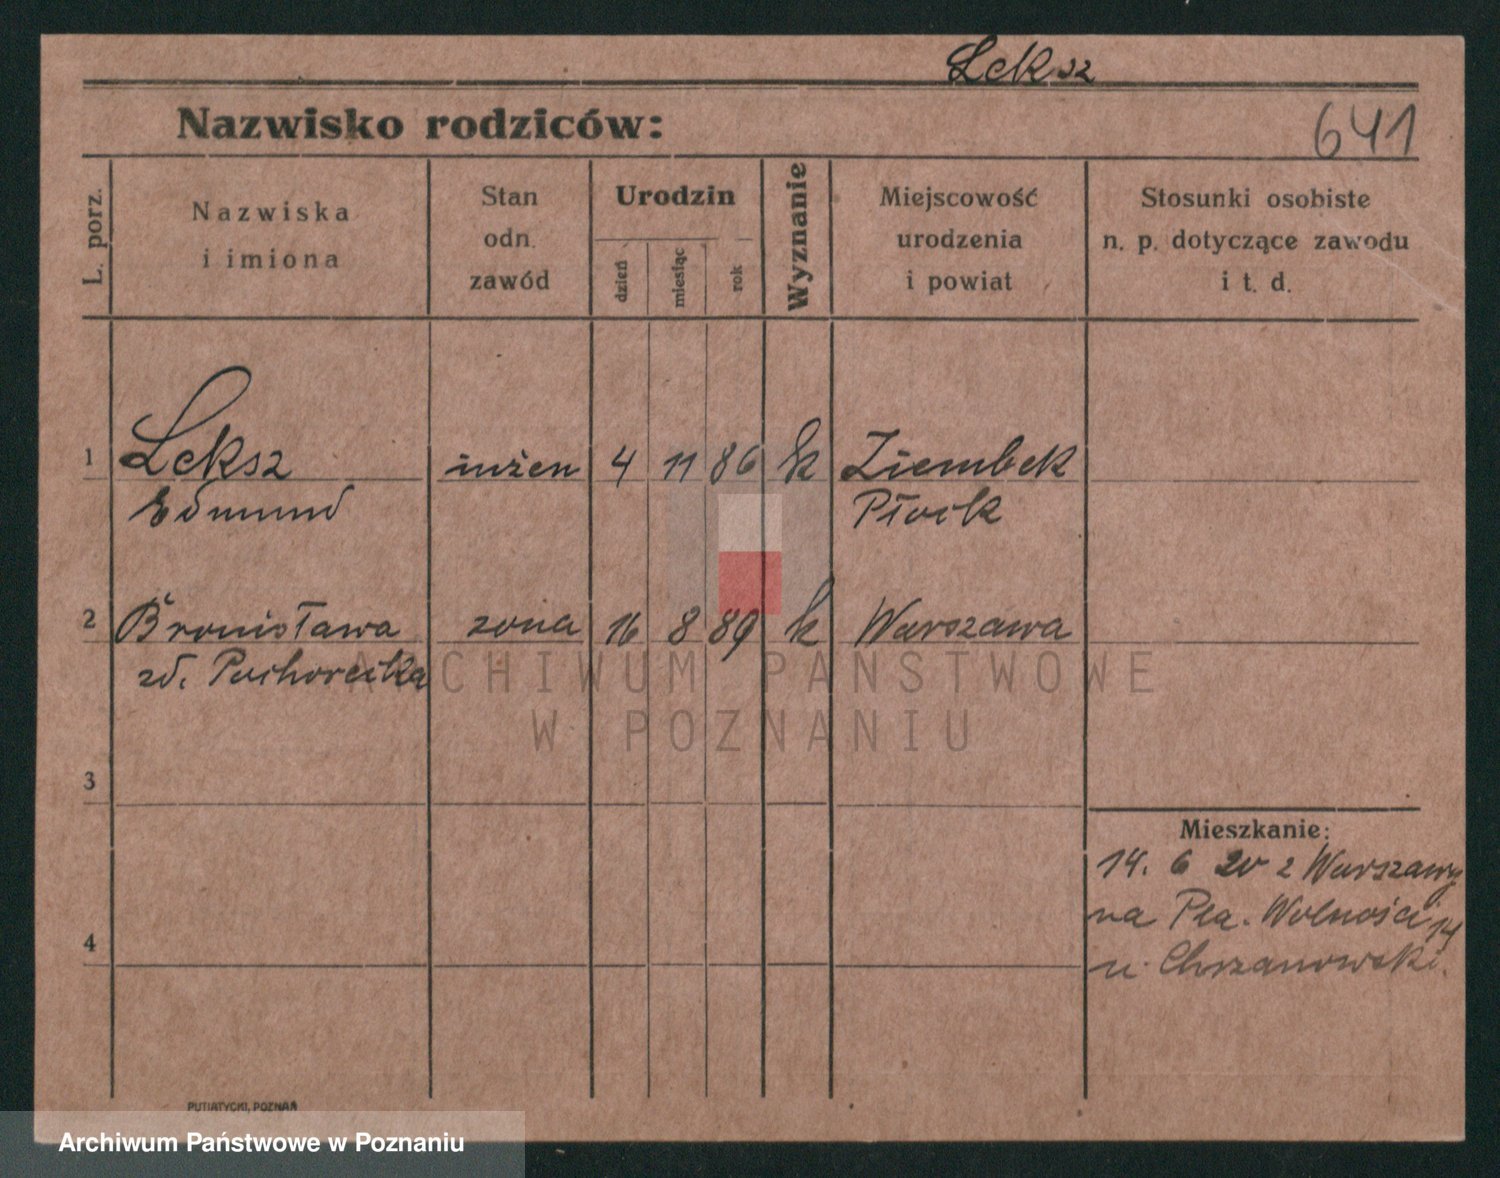 Leksz
Nazwisko rodziców:
641
L. porz.
Nazwiska
i imiona
Stan
odn.
zawód
Urodzin
dzień
miesiąc
rok
Wyznanie
Miejscowość
urodzenia
i powiat
Stosunki osobiste
n. p. dotyczące zawodu
i t. d.
1 Leksz inżen 4 11 86 k Ziembek
Edmund Płock
2 Bronisława zona 16 8 89 k Warszawa
zd.
3
Mieszkanie:
14. 6 20 z Warszawy
na Pla. Wolności 14
4
u Chrzanowski.
PUTIATYCKI, POZNAŃ
ARCHIWUM PAŃSTWOWE
W POZNANIU
Archiwum Państwowe w Poznaniu